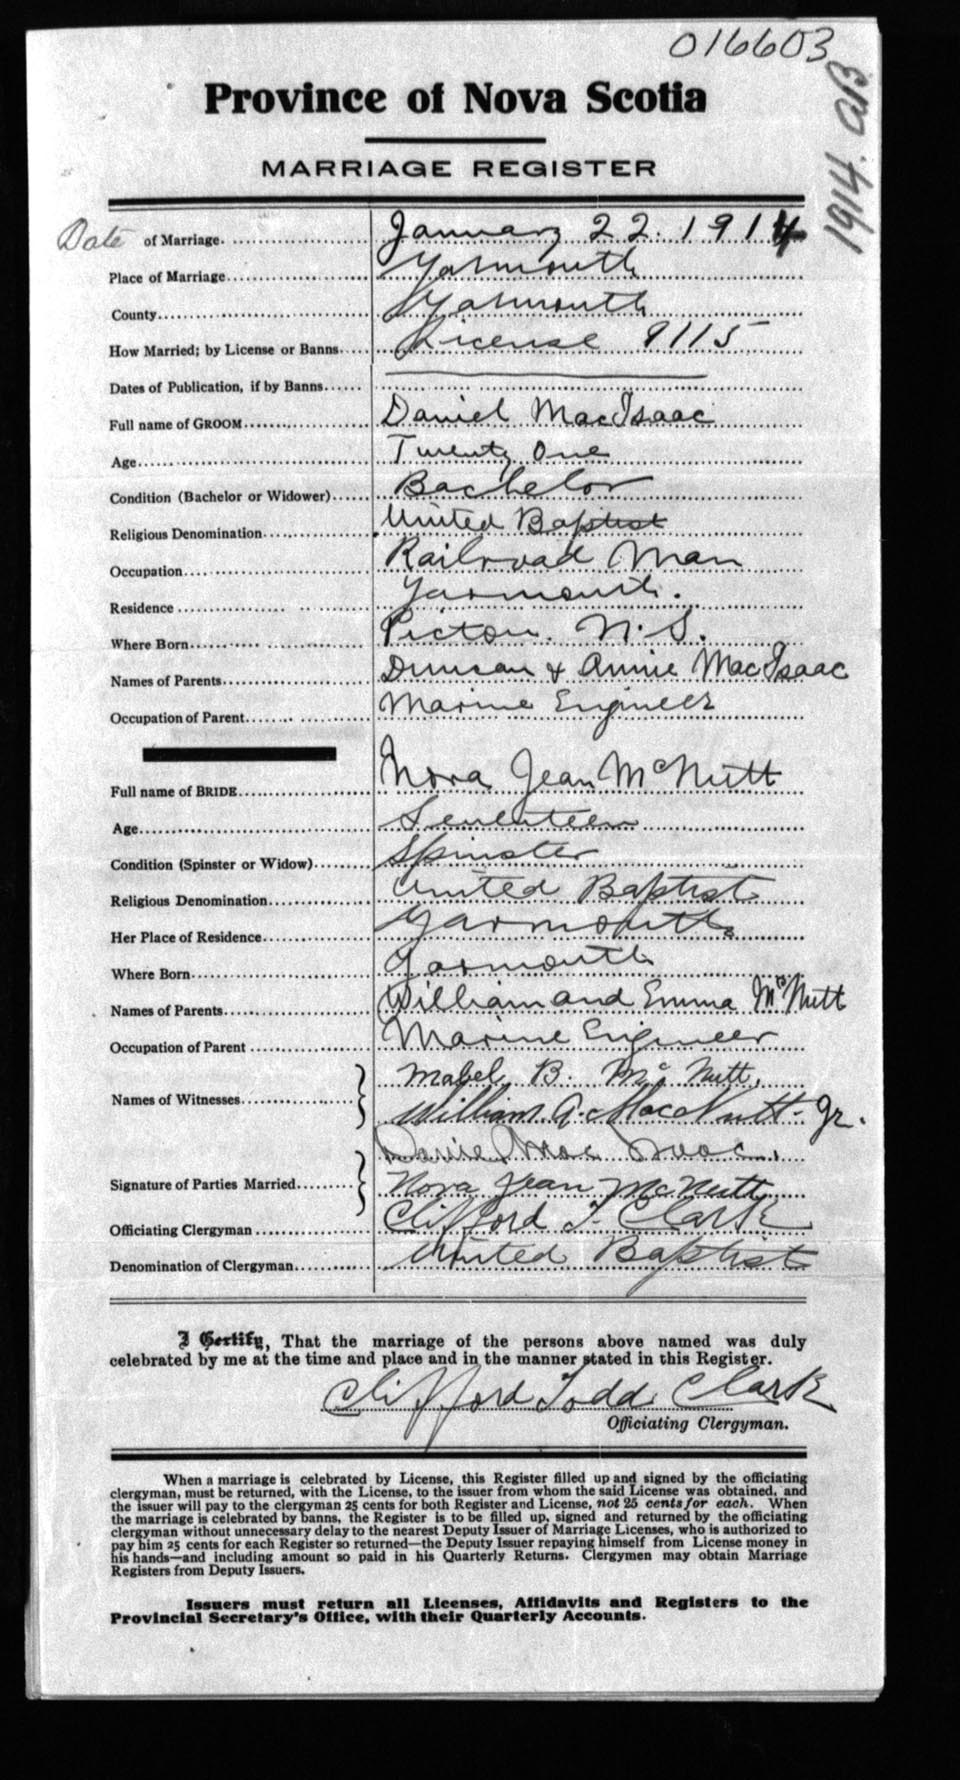 016603
1914. AB
Province of Nova Scotia
MARRIAGE REGISTER
Date of Marriage. January 22. 1914
Place of Marriage Yarmouth
County Yarmouth
How Married; by License or Banns License 9115
Dates of Publication, if by Banns
Full name of GROOM Daniel MacIsaac
Age Twenty One
Condition (Bachelor or Widower) Bachelor
Religious Denomination United Baptist
Occupation Railroad Man
Residence Yarmouth.
Where Born Pictou. N.S.
Names of Parents Duncan & Annie MacIsaac
Occupation of Parent Marine Engineer
Full name of BRIDE Nora Jean McNutt
Age Seventeen
Condition (Spinster or Widow) Spinster
Religious Denomination United Baptist
Her Place of Residence Yarmouth
Where Born Yarmouth
Names of Parents William and Emma McNutt
Occupation of Parent Marine Engineer
Names of Witnesses Mabel B. McNutt.
William A. MacNutt- Jr.
Signature of Parties Married Daniel Mac Isaac.
Nora Jean McNutt
Officiating Clergyman Clifford T. Clark
Denomination of Clergyman United Baptist
I Certify, That the marriage of the persons above named was duly
celebrated by me at the time and place and in the manner stated in this Register.
Clifford Todd Clark
Officiating Clergyman.
When a marriage is celebrated by License, this Register filled up and signed by the officiating
clergyman, must be returned, with the License, to the issuer from whom the said License was obtained, and
the issuer will pay to the clergyman 25 cents for both Register and License, not 25 cents for each. When
the marriage is celebrated by banns, the Register is to be filled up, signed and returned by the officiating
clergyman without unnecessary delay to the nearest Deputy Issuer of Marriage Licenses, who is authorized to
pay him 25 cents for each Register so returned—the Deputy Issuer repaying himself from License money in
his hands—and including amount so paid in his Quarterly Returns. Clergymen may obtain Marriage
Registers from Deputy Issuers.
Issuers must return all Licenses, Affidavits and Registers to the
Provincial Secretary's Office, with their Quarterly Accounts.